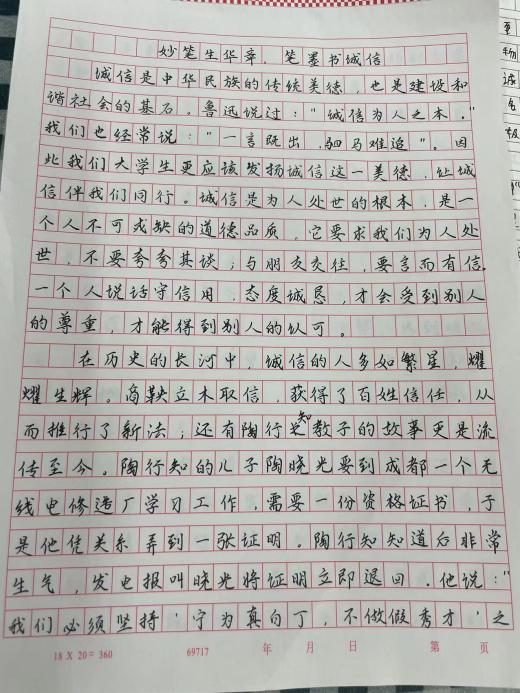 妙笔生华章，笔墨书诚信
诚信是中华民族的传统美德，也是建设和
谐社会的基石。鲁迅说过："诚信为人之本。"
我们也经常说："一言既出，驷马难追"。因
此我们大学生更应该发扬诚信这一美德，让诚
信伴我们同行。诚信是为人处世的根本，是一
个人不可或缺的道德品质。它要求我们为人处
世，不要夸夸其谈；与朋友交往，要言而有信。
一个人说话守信用，态度诚恳，才会受到别人
的尊重，才能得到别人的认可。
在历史的长河中，诚信的人多如繁星，耀
耀生辉。商鞅立木取信，获得了百姓信任，从
而推行了新法；还有陶行知教子的故事更是流
传至今。陶行知的儿子陶晓光要到成都一个无
线电修造厂学习工作，需要一份资格证书，于
是他凭关系弄到一张证明。陶行知知道后非常
生气，发电报叫晓光将证明立即退回。他说："
我们必须坚持'宁为真白丁，不做假秀才'之
18 X 20 = 360 69717 年 月 日 第 页